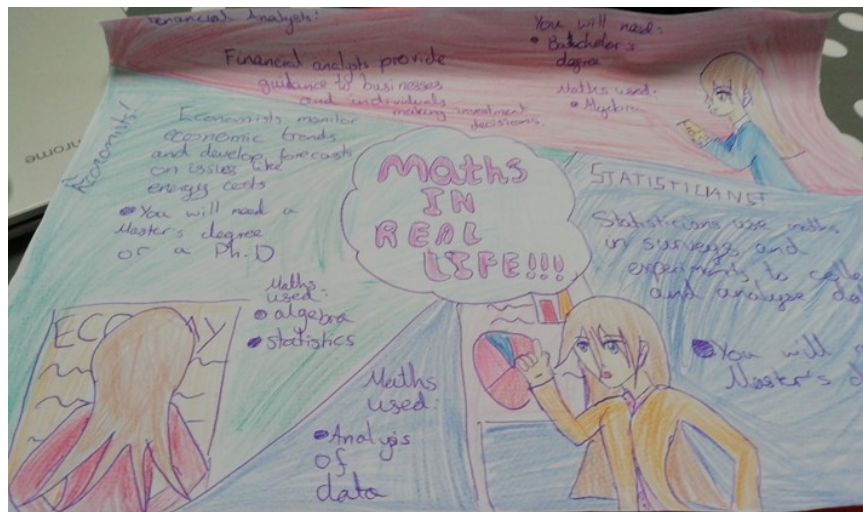 Analysts:
Financial analysts provide
guidance to businesses
and individuals
making investment
decisions.
You will need:
• Batchelor's
degree
Maths used:
• Algebra
Economists!
Economists monitor
economic trends
and develop forecasts
on issues like
energy costs
• You will need a
Master's degree
or a Ph.D
Maths
used:
• algebra
• statistics
MATHS
IN
REAL
LIFE!!!
STATISTICIANS!
Statisticians use maths
in surveys and
experiments to
and analyze
• You will
Master's
Maths
used:
• Analysis
of
data